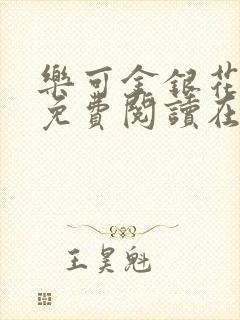 樂可金銀花
免費閱讀在
王昊魁